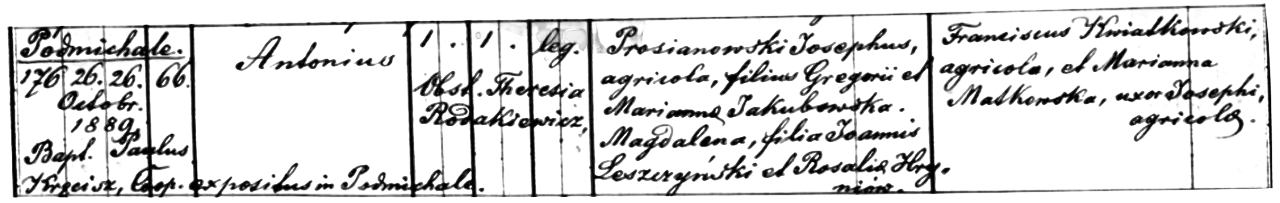 Podmichale.
176 26. 26. 66.
Octobr.
1889.
Bapt. Paulus
Krzcisz, Coop. expositus in Podmichale.
Antonius
1 . 1 . leg.
Obst. Theresia
Rodakiewicz,
Prosianowski Josephus,
agricola, filius Gregorii et
Mariannæ Jakubowska.
Magdalena, filia Joannis
Leszczyński et Rosaliæ Hry-
niów.
Franciscus Kwiatkowski,
agricola, et Marianna
Matkowska, uxor Josephi,
agricolæ.